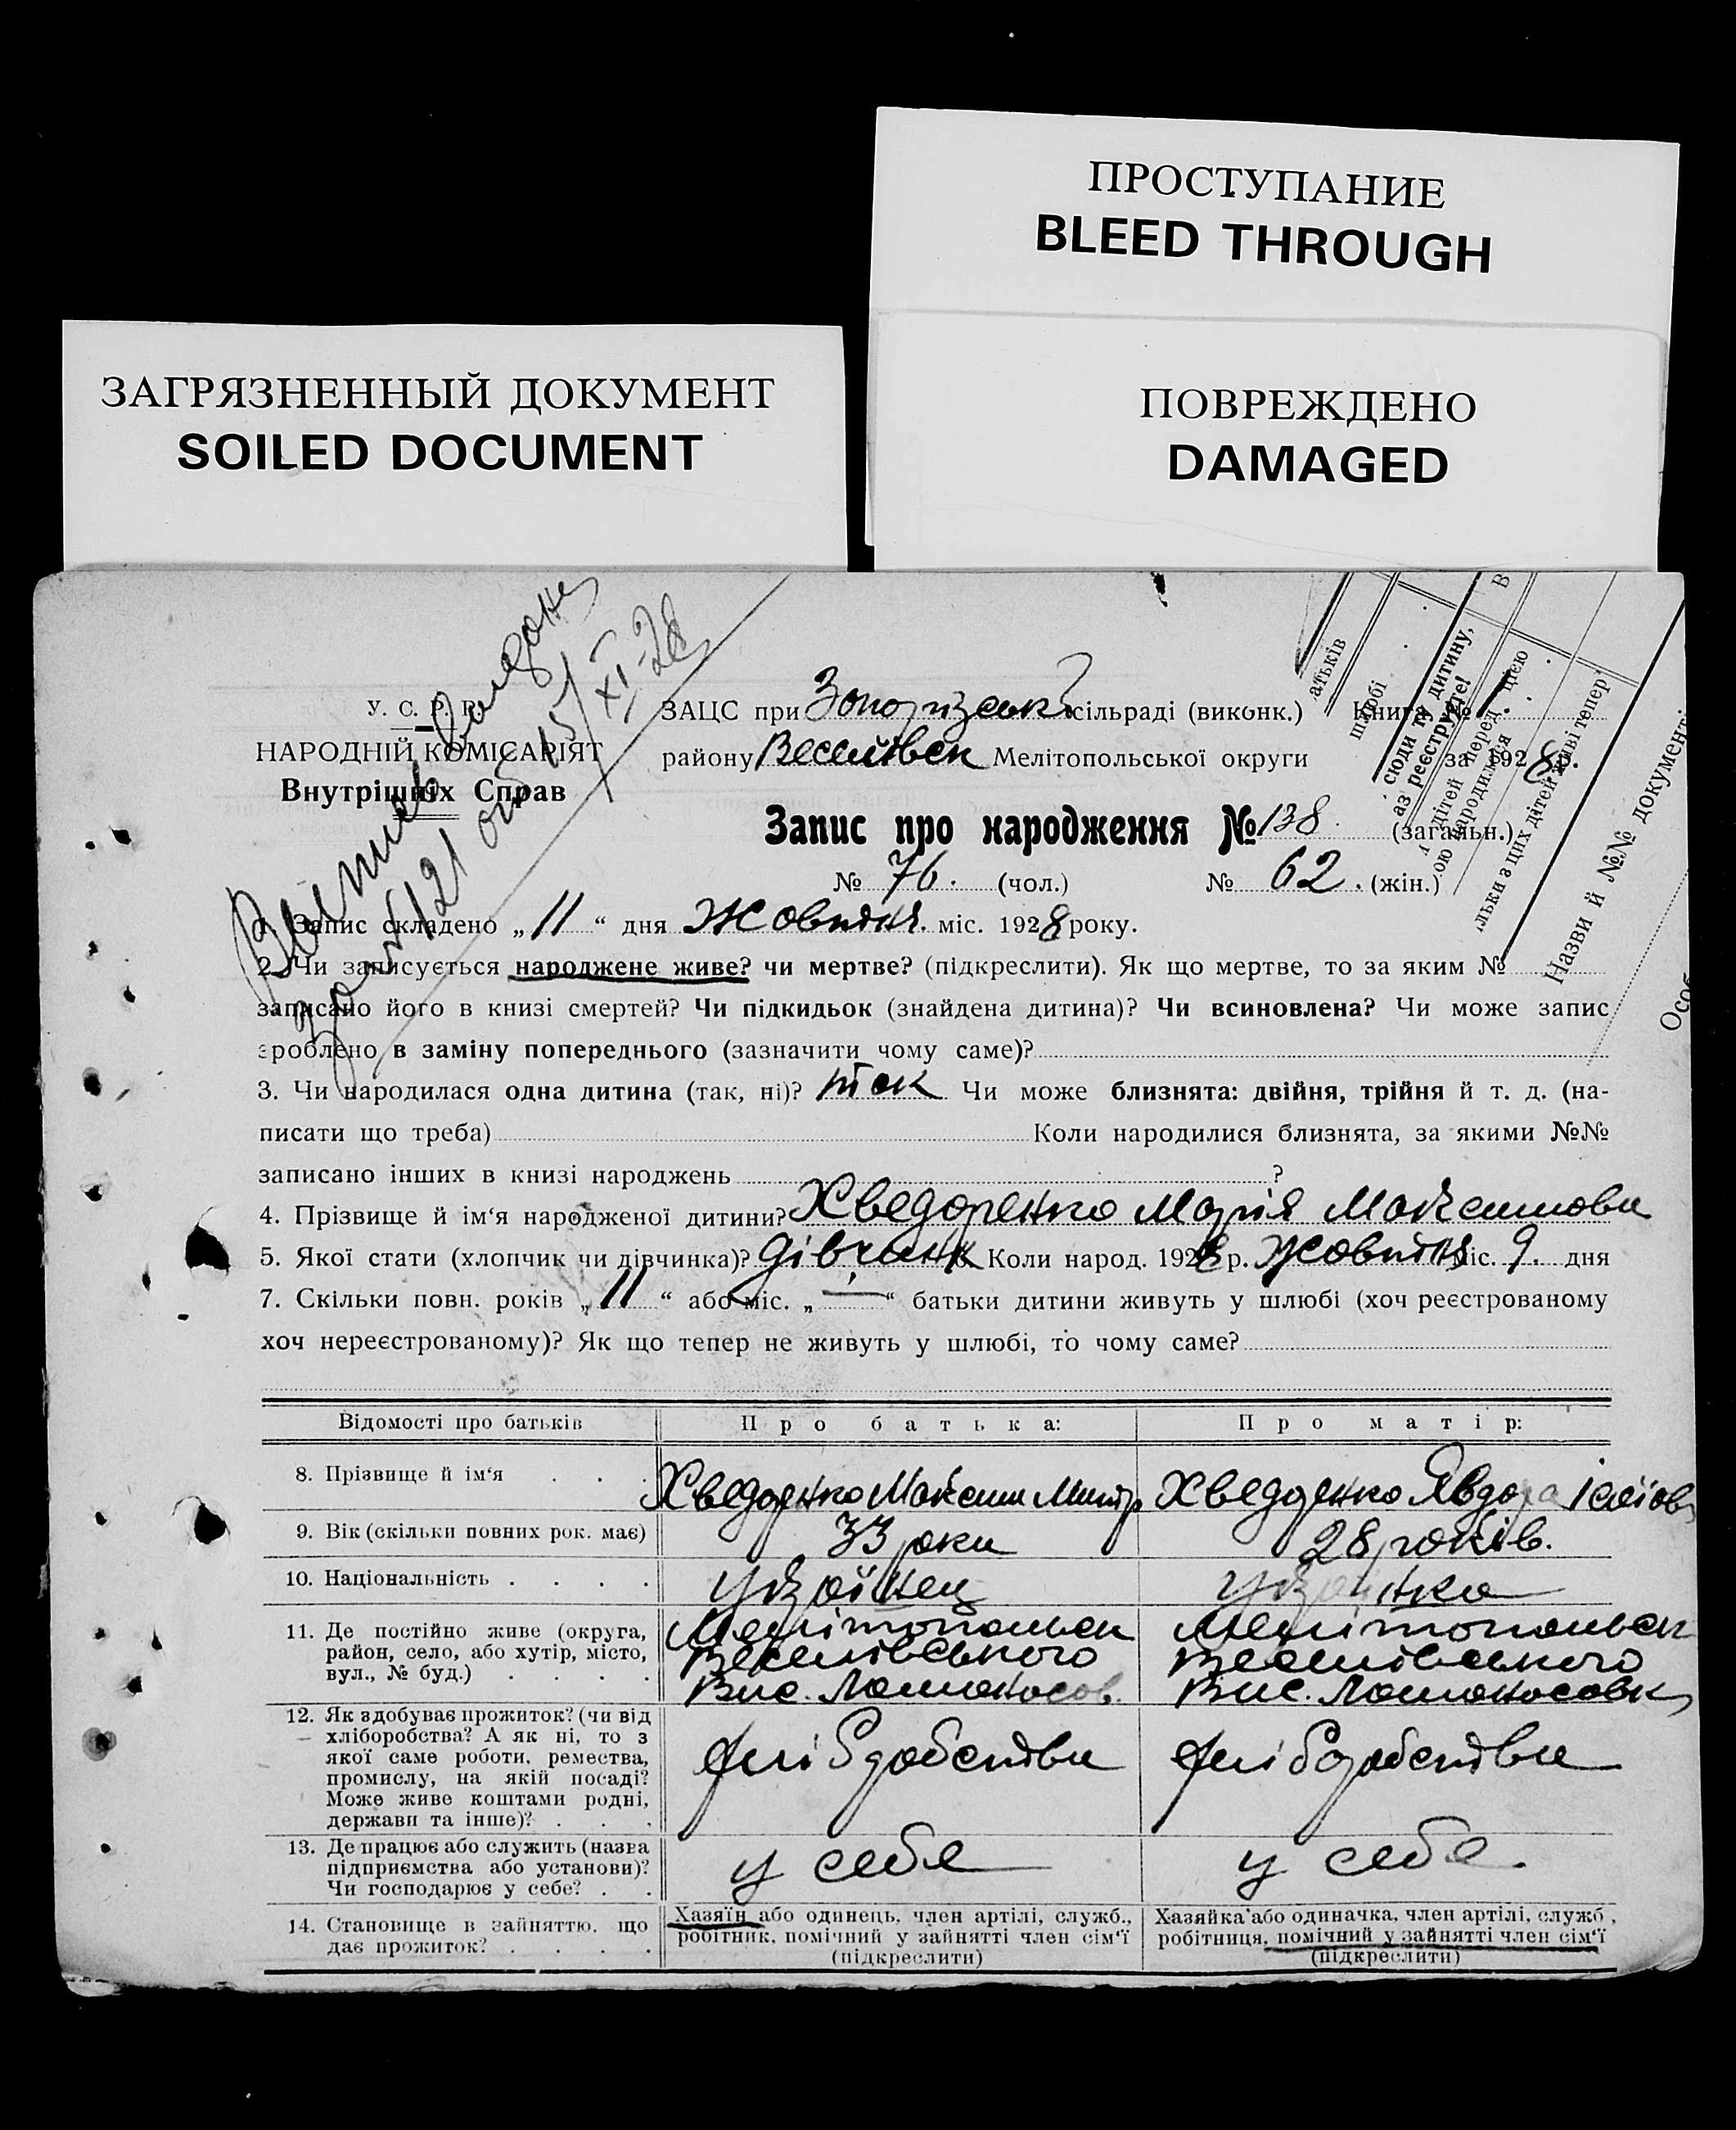 ПРОСТУПАНИЕ
BLEED THROUGH
ЗАГРЯЗНЕННЫЙ ДОКУМЕНТ
SOILED DOCUMENT
ПОВРЕЖДЕНО
DAMAGED
У. С. Р. Р.
НАРОДНІЙ КОМІСАРІЯТ
Внутрішніх Справ
XI-28
ЗАЦС при сільраді (виконк.) Книга №
району Веселівськ Мелітопольської округи за 1928 р.
Запис про народження № 138 (загальн.)
№ 76. (чол.) № 62. (жін.)
атьків
шлюбі
сюди ту дитину,
аз реєструєте!
дітей перед цією
ою народилися
льки з цих дітей живі тепер
Назви й №№ документ
Особ
1. Запис складено „11“ дня Жовтня. міс. 1928 року.
2. Чи записується народжене живе? чи мертве? (підкреслити). Як що мертве, то за яким №
записано його в книзі смертей? Чи підкидьок (знайдена дитина)? Чи всиновлена? Чи може запис
зроблено в заміну попереднього (зазначити чому саме)?
3. Чи народилася одна дитина (так, ні)? так Чи може близнята: двійня, трійня й т. д. (на-
писати що треба) Коли народилися близнята, за якими №№
записано інших в книзі народжень ?
4. Прізвище й ім‘я народженої дитини? Хведоренко Марія Максимовн
5. Якої стати (хлопчик чи дівчинка)? дівчинк Коли народ. 1928 р. Жовтня міс. 9. дня
7. Скільки повн. років „11“ або міс. „—“ батьки дитини живуть у шлюбі (хоч реєстрованому
хоч нереєстрованому)? Як що тепер не живуть у шлюбі, то чому саме?
Відомості про батьків Про батька: Про матір:
8. Прізвище й ім‘я Хведоренко Максим Митр Хведоренко Явдоха
9. Вік (скільки повних рок. має) 33 роки 28 років.
10. Національність . . . . українец українка
11. Де постійно живе (округа,
район, село, або хутір, місто,
вул., № буд.) . . . .
Мелітопольськ Мелітопольськ
Веселівського Веселівського
Вис. Ломоносов. Вис. Ломоносовк
12. Як здобуває прожиток? (чи від
хліборобства? А як ні, то з
якої саме роботи, ремества,
промислу, на якій посаді?
Може живе коштами родні,
держави та інше)? . . .
хліборобства хліборобства
13. Де працює або служить (назва
підприємства або установи)?
Чи господарює у себе? . .
у себе у себе.
14. Становище в зайняттю, що
дає прожиток? . . . .
Хазяїн або одинець, член артілі, служб.,
робітник, помічний у зайнятті член сім‘ї
(підкреслити)
Хазяйка або одиначка, член артілі, служб.,
робітниця, помічний у зайнятті член сім‘ї
(підкреслити)